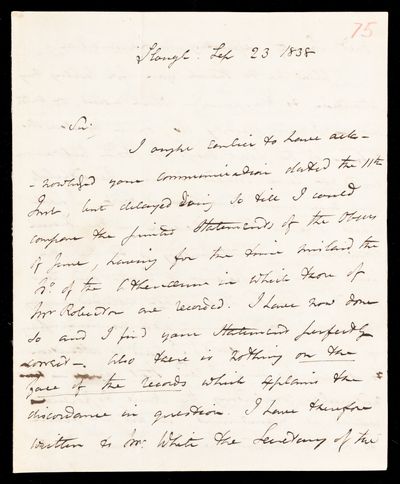 75
Slough. Sep 23 1838
Sir,
I ought earlier to have ack-
-nowledged your communication dated the 11th
Inst, but delayed doing so till I could
compare the printed Statements of the Observ
of June, having for the time mislaid the
No. of the Athenaeum in which those of
Mr Roberton are recorded. I have now done
so and I find your Statement perfectly
correct - Also there is nothing on the
face of the records which explains the
discordance in question. I have therefore
written to Mr. White the Secretary of the